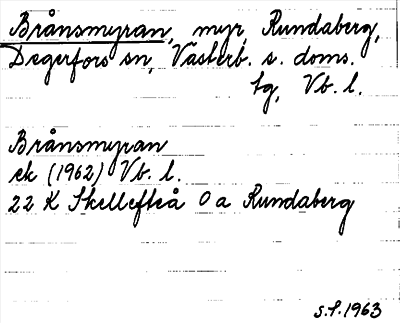 Brånsmyran, myr, Rundaberg,
Degerfors sn, Västerb. s. doms.
tg, Vb. l.
Brånsmyran
ek (1962) Vb. l.
22 K Skellefteå 0 a Rundaberg
s.f. 1963